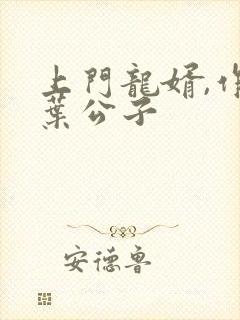 上門龍婿,作
葉公子
安德魯